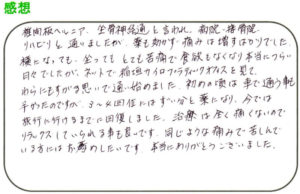 感想
椎間板ヘルニア、坐骨神経痛と言われ、病院、接骨院、
リハビリと通いましたが、薬も効かず痛みは増すばかりでした。
横になっても、坐っても とても苦痛で食欲もなくなり本当につらい
日々でしたが、ネットで稲垣カイロプラクティックオフィスを見て、
わらにもすがる思いで通い始めました。初めの頃は車で通う事も
辛かったのですが、3〜4回位にはずい分と楽になり、今では
旅行に行けるまでに回復しました。治療は全く痛くないので
リラックスしていられる事も良いです。同じような痛みで苦しんで
いる方にはお薦めしたいです。本当にありがとうございました。